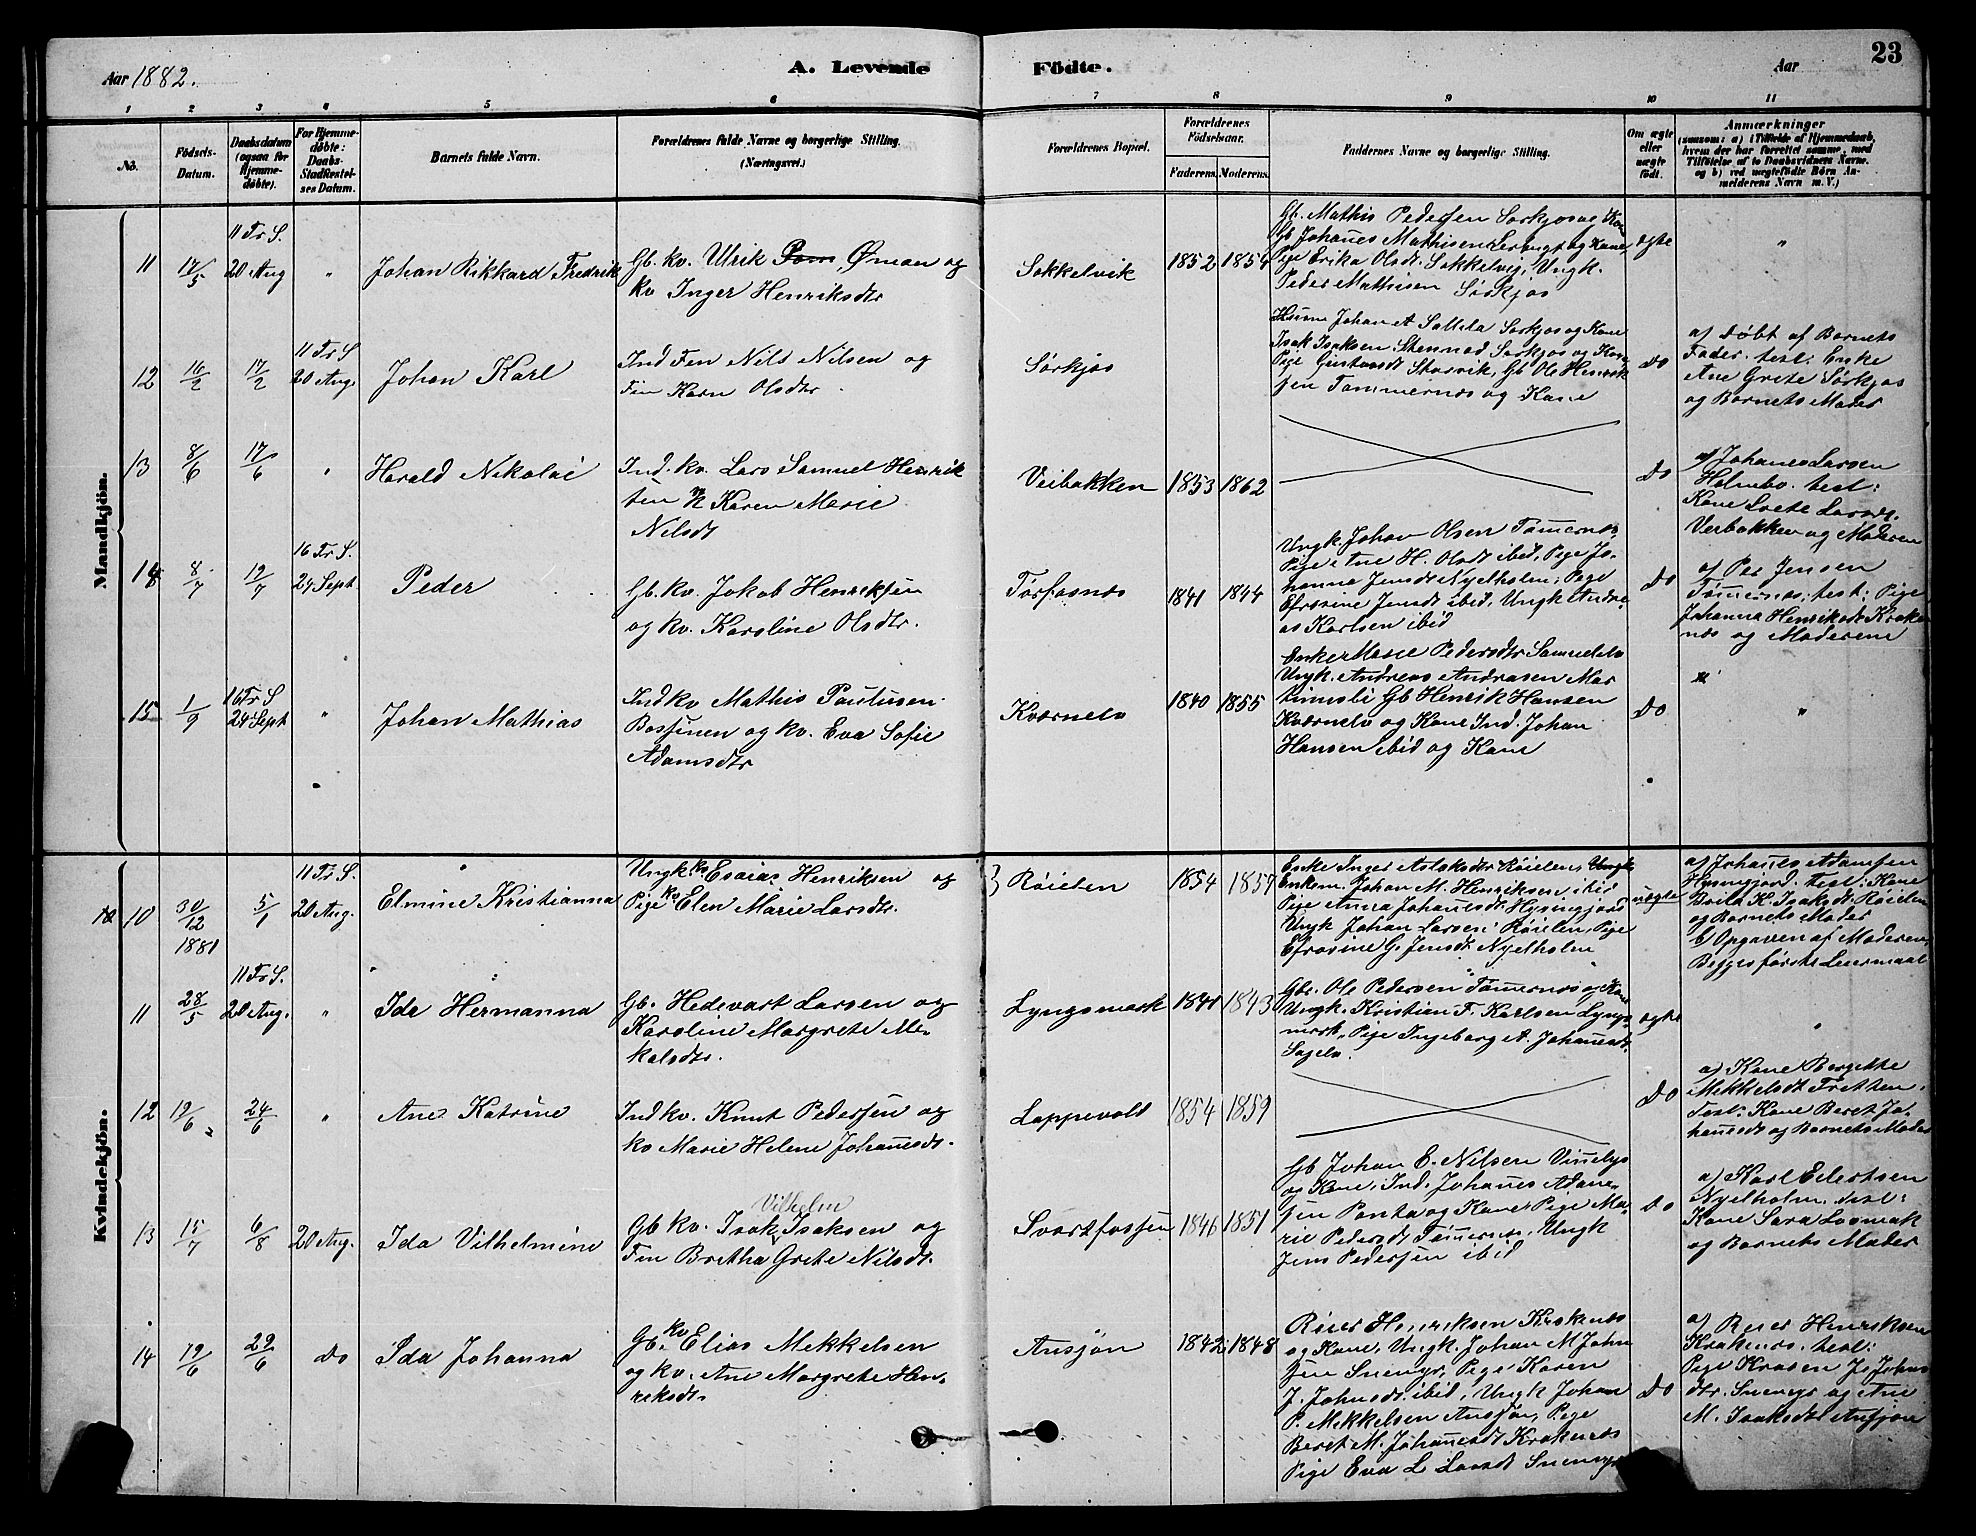 Aar 1882.
A. Levende
Födte.
Aar
23
1 2 3 4 5 6 7 8 9 10 11
No.
Födsels-
Datum.
Daabsdatum
(ogsaa for
Hjemme-
döbte).
For Hjemme-
döbte:
Daabs-
Stadfæstel-
ses Datum.
Barnets fulde Navn.
Forældrenes fulde Navne og borgerlige Stilling.
(Næringsvei.)
Forældrenes Bopæl.
Forældrenes
Födselsaar.
Faderens.
Moderens.
Faddernes Navne og borgerlige Stilling.
Om ægte
eller
uægte
födt.
Anmærkninger
(saasom: a) i Tilfælde af Hjemmedaab,
hvem der har forrettet samme, med
Tilföielse af to Daabsvidners Navne.
og b) ved uægtefödte Börn An-
melderens Navn m. V.)
Mandkjön.
11
17/5
11 Tr. S.
20 Aug
"
Johan Rikkard Fredrik
Gb. kv. Ulrik Öman og
kv Inger Henriksdtr
Sokkelvik
1852
1854
Gb. Mathis Pedersen Sorkjosne Kone
Gb Johannes Mathisen og Kane,
Pige Erika Olsdt. Sokkelvig, Ungk.
Peder Mathisen Sörkjos
ægte
"
12
16/2
17/2
11 Tr S
20 Aug.
Johan Karl
Ind Fin Nils Nilsen og
Fin Karn Olsdtr.
Sörkjos
Johan A Sorkjos og Kone
Isak Isaksen Sorkjos og Kone
Pige Storvik, Gb Ole Henrik
sen Tömmernæs og Kane
Do
a) Döbt af Barnets
Fader. test: Enke
Ane Grete Sörkjos
og Barnets Moder
13
8/6
17/6
"
Harald Nikolai
Ind. kv. Lars Samuel Henrik
sen Karen Marie
Nilsdt
Veibakken
1853
1862
Do
a) Johanes Larsen
Holmbo. test:
Kone Larsdt.
Verbakken og Moderen
14
8/7
12/7
16 Tr. S.
24 Sept
Peder
Gb. kv. Jakob Henriksen
og kv. Karoline Olsdtr.
Torfosnæs
1841
1844
Ungk. Johan Olsen Tömernæs,
Pige Ane H. Olsdt ibid, Pige Jo-
hanna Jensdt Nyelholm, Pige
Efrosine Jensdt ibid, Ungk Andre-
as Karlsen ibid
Do
a) Per Jensen
Tömernæs; test: Pige
Johanna Henriksdt Krake
næs og Moderene
15
1/9
16 Tr S
24 Sept
"
Johan Mathias
Ind kv Mathis Paulusen
og kv. Eva Sofie
Adamsdtr
Kværnelv
1840
1855
Enke Marie Pedersdtr
Ungk. Andreas Andrasen Mar
Gb Henrik Hansen
Kværnelv og Kane Ind. Johan
Hansen ibid og Kane
Do
"
Kvindekjön.
10
30/12
1881
5/1
11 Tr. S.
20 Aug.
Elmine Kristianna
Ungk kv Esaias Henriksen og
Pige kv Elen Marie Larsdtr.
Röielen
1854
1857
Enke Inger Aslaksdtr Röielen,
Enkem. Johan M. Henriksen ibid
Pige Anna Johanesdt.
Ungk Johan Larsen Röielen, Pige
Efrosine G. Jensdt Nyelholm
uægte
a) Johanes Adamsen
test: Kane
Brita K. Isaksdt. Röielen
og Barnets Moder
b) Opgaven af Moderen,
Begges förste Leiermaal
11
28/5
11 Tr. S.
20 Aug.
"
Ida Hermanna
Gb. Hedevart Larsen og
Karoline Margrete Me-
kalsdtr.
Lyngsmark
1841
1843
Gb. Ole Pedersen Tömernæs og Kone
Ungk. Kristian F. Karlsen Lyngs-
mark, Pige Ingeborg A. Johanesdt.
Sagelv.
ægte
"
12
12/6
24/6
"
Ane Katrine
Ind kv. Knut Pedersen og
kv Marie Helene Johanesdt.
Lappevold
1854
1859
Do
a) Kane Bergitte
Mikkelsdt Tretten.
Test: Kane Beret Jo-
hanesdt og Barnets Moder
13
15/7
6/8
20 Aug.
Ida Vilhelmine
Vilhelm
Gb kv. Isak Isaksen og
Fin Bretha Grete Nilsdt.
Svartfossen
1846
1851
Gb Johan E. Nilsen
og Kane, Ind. Johanes Adam-
sen Ponta og Kane Pige Ma-
rie Pedersdt Tömernæs, Ungk
Jens Pedersen ibid
Do
a) Karl Edertsen
Nyelholm. test:
Kane Sara
og Barnets Moder
14
12/6
29/6
Do
Ida Johanna
Gb. kv Elias Mekkelsen
og kv. Ane Margrete Hen-
riksdt.
Ansjön
1842
1848
Röier Henriksen Krokenæs
og Kane, Ungk. Johan M John
sen Snemyr, Pige Karen
J. Johnsdt. ibid, Ungk Johan
P. Mekkelsen Ansjön, Pige
Beret M. Johanesdt Krokenæs
Pige Eva L Larsdt Snemyr
Do
a) Reier Henriksen
Krakenes. test:
Pige Karen J. Johns
dtr. Snemyr og Ane
M. Isaksdt Ansjon